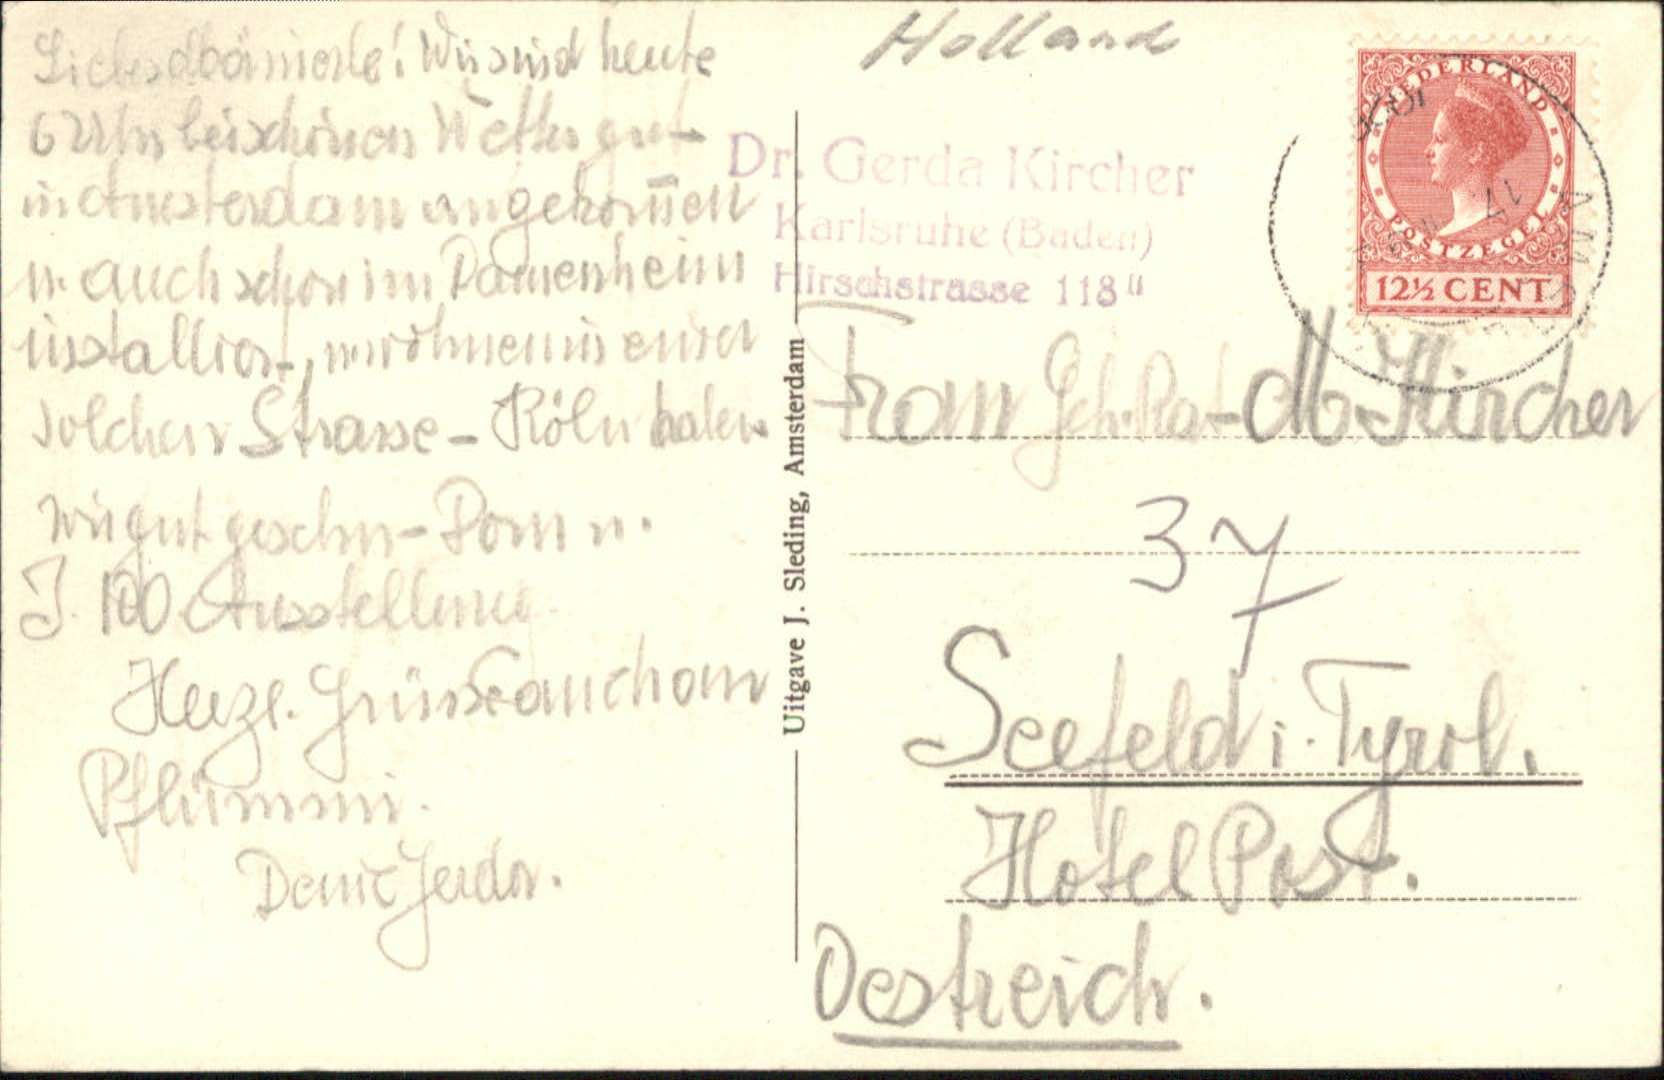 Holland
Liebes Mämerle! Wir sind heute
6 Uhr bei schönen Wetter gut
in Amsterdam angekommen
u. auch schon im Damenheim
installiert, wohnen in einer
solchen Strasse - Köln haben
wir gut gesehn - Dom u.
J. 100 Ausstellung.
Herzl. Grüsse auch an
Pflümmi.
Deine Gerda.
Uitgave J. Sleding, Amsterdam
Dr. Gerda Kircher
Karlsruhe (Baden)
Hirschstrasse 118 II
NEDERLAND
POSTZEGEL
12½ CENT
Frau Geh. Rat M. Kircher
37
Seefeld i. Tyrol.
Hotel Post.
Oestreich.